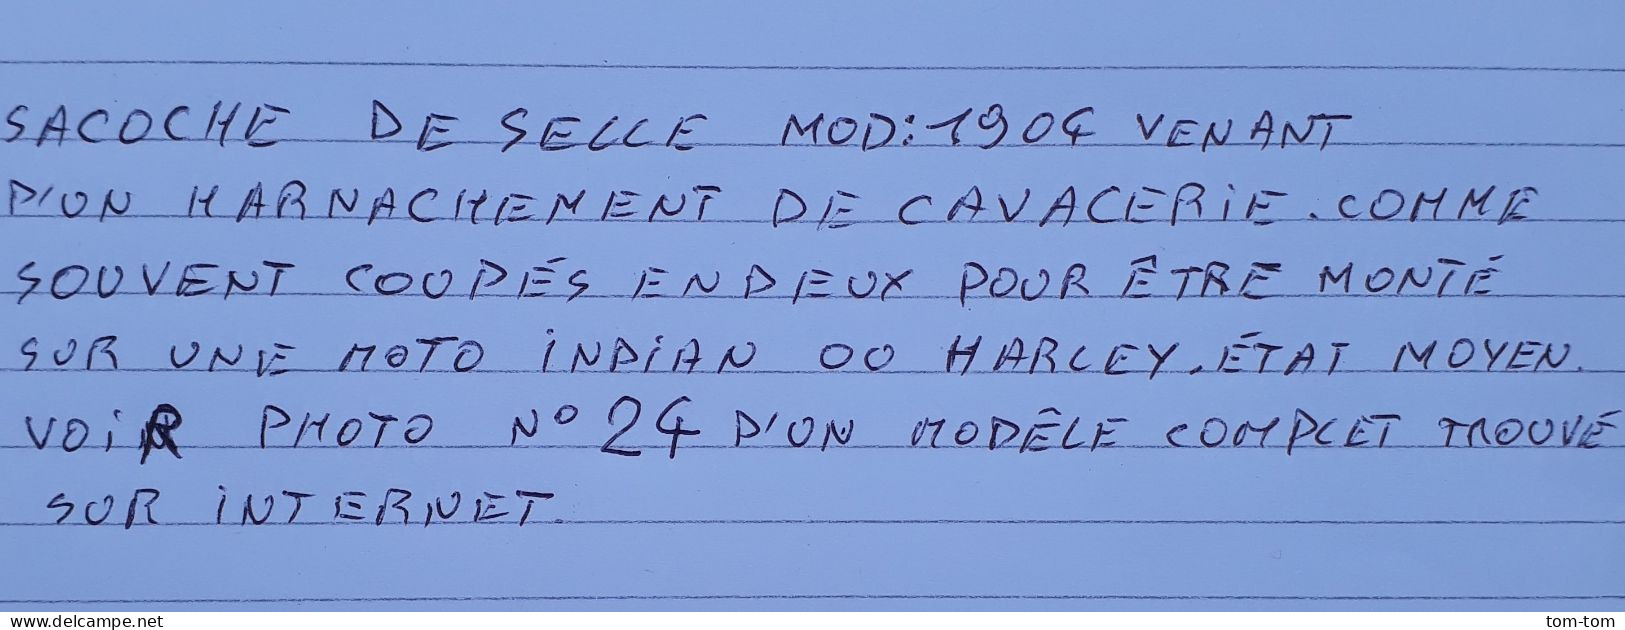 SACOCHE DE SELLE MOD:1904 VENANT
D'UN HARNACHEMENT DE CAVALERIE. COMME
SOUVENT COUPÉS EN DEUX POUR ÊTRE MONTÉ
SUR UNE MOTO INDIAN OU HARLEY. ÉTAT MOYEN.
VOIR PHOTO N° 24 D'UN MODÊLE COMPLET TROUVÉ
SUR INTERNET.
www.delcampe.net
tom-tom